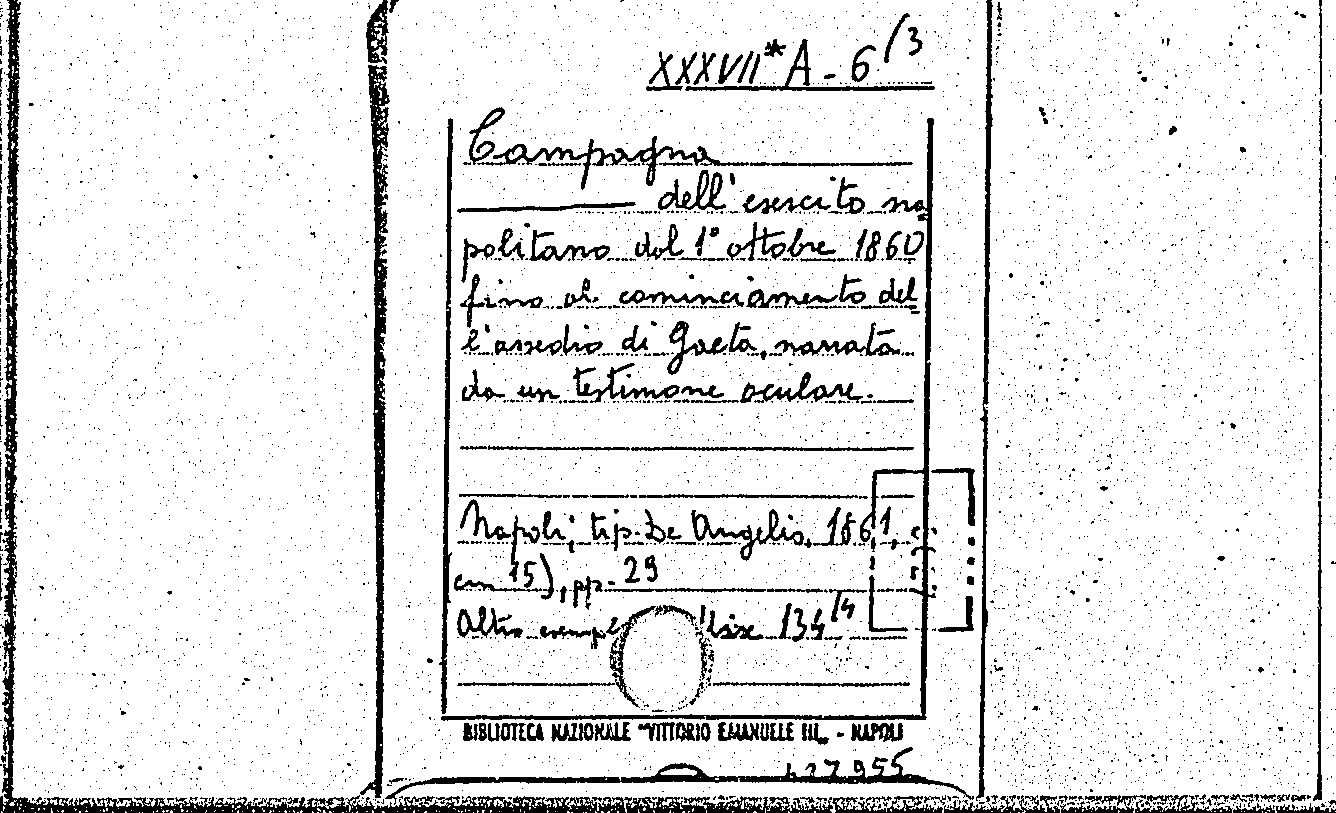 XXXVII* A - 6/3
Campagna
dell'esercito na
politano dal 1° ottobre 1860
fino al cominciamento del
l'assedio di Gaeta, narrata
da un testimone oculare.
Napoli, tip. De Angelis, 1861,
(cm 15), pp. 29
Altro 134/4
BIBLIOTECA NAZIONALE "VITTORIO EMANUELE III" - NAPOLI